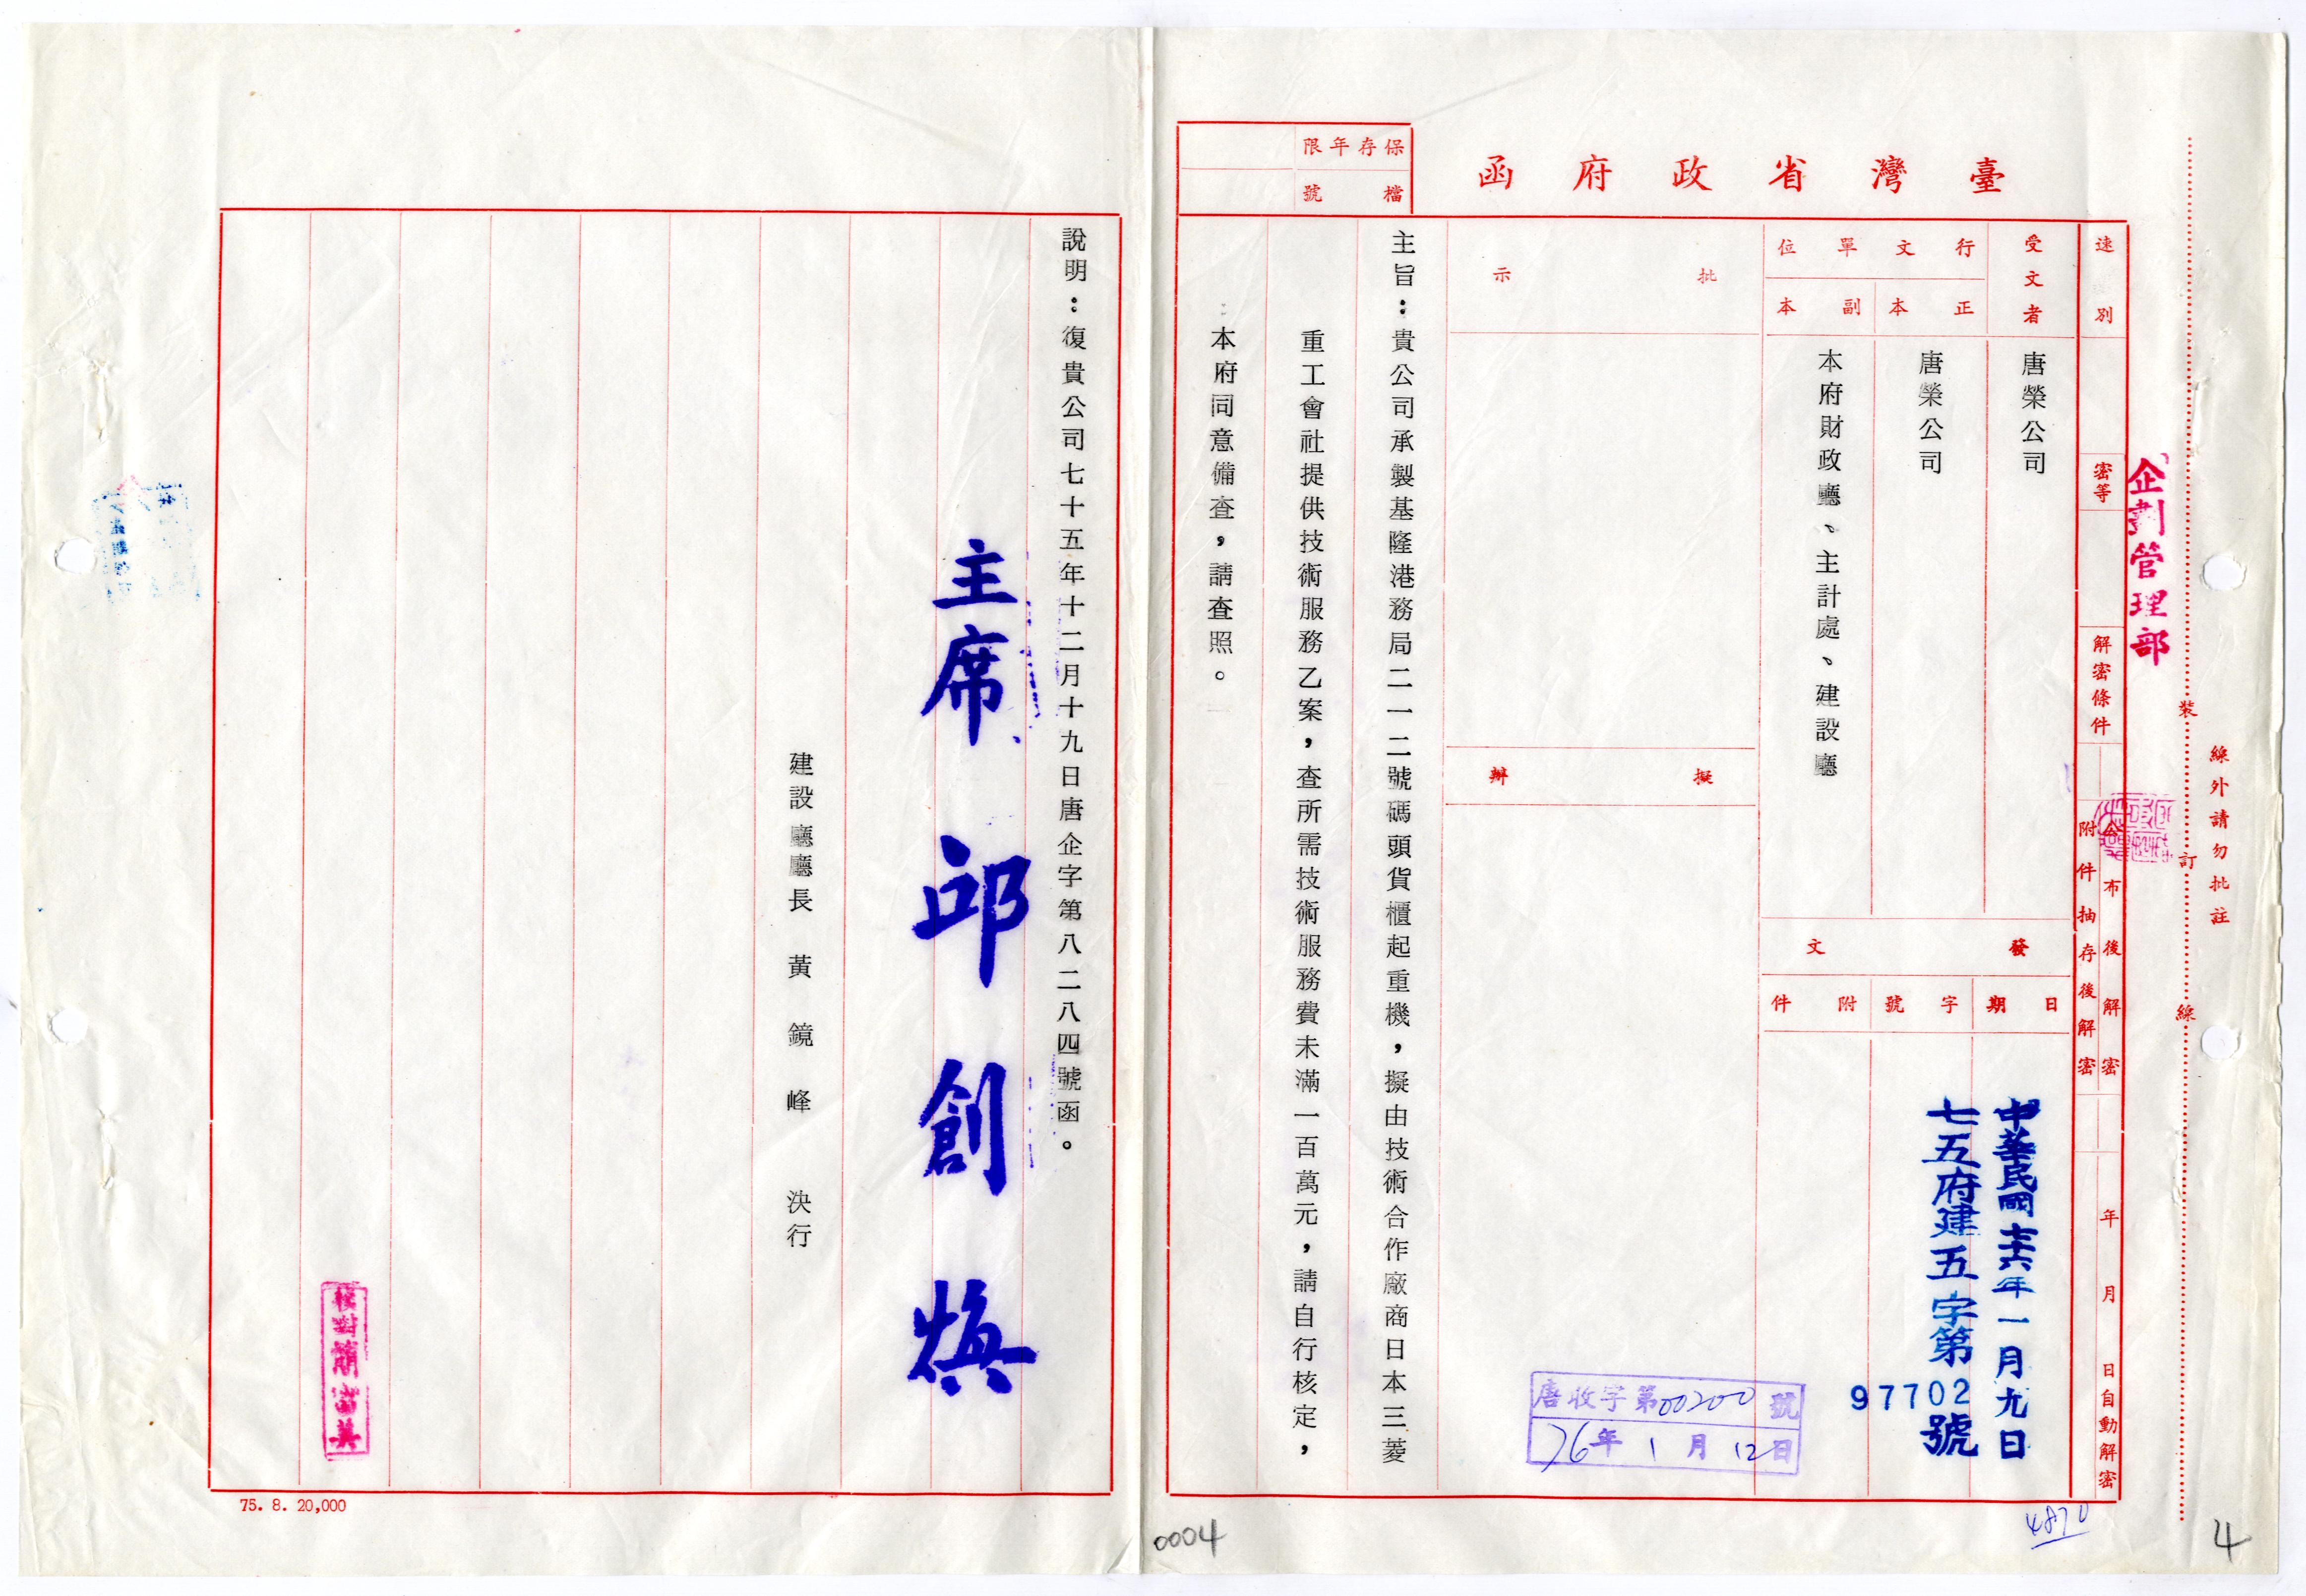 臺灣省政府函
保存年限
檔號
速別
密等
解密條件
公布後解密
附件抽存後解密
年月日自動解密
受文者
唐榮公司
行文單位
正本
唐榮公司
副本
本府財政廳、主計處、建設廳
發文
日期
中華民國七十六年一月九日
字號
七五府建五字第97702號
附件
批示
擬辦
唐收字第00200號
76年1月12日
主旨：貴公司承製基隆港務局二一二號碼頭貨櫃起重機，擬由技術合作廠商日本三菱
重工會社提供技術服務乙案，查所需技術服務費未滿一百萬元，請自行核定，
本府同意備查，請查照。
說明：復貴公司七十五年十二月十九日唐企字第八二八四號函。
主席 邱創煥
建設廳廳長 黃鏡峰 決行
企劃管理部
裝訂線
線外請勿批註
75. 8. 20,000
0004
4870
4